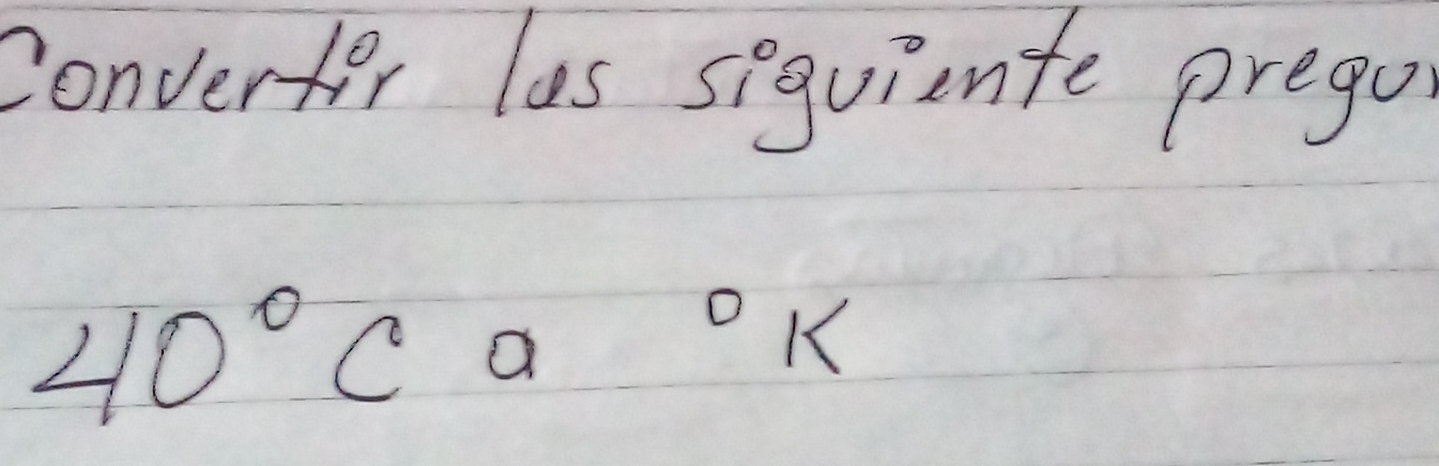 Convertir las siguiente pregun
40° C a °K